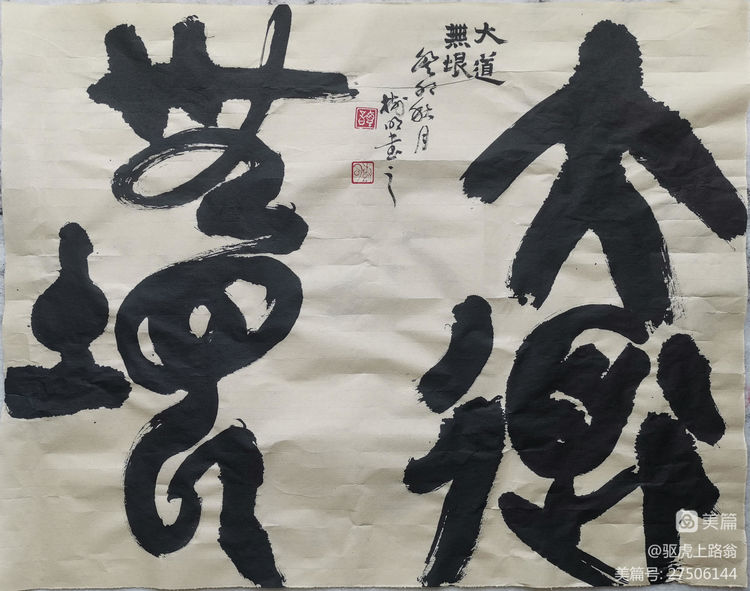 大道
無垠
大道
無垠
癸卯秋月
樹明書之
美篇
@驱虎上路翁
美篇号: 27506144